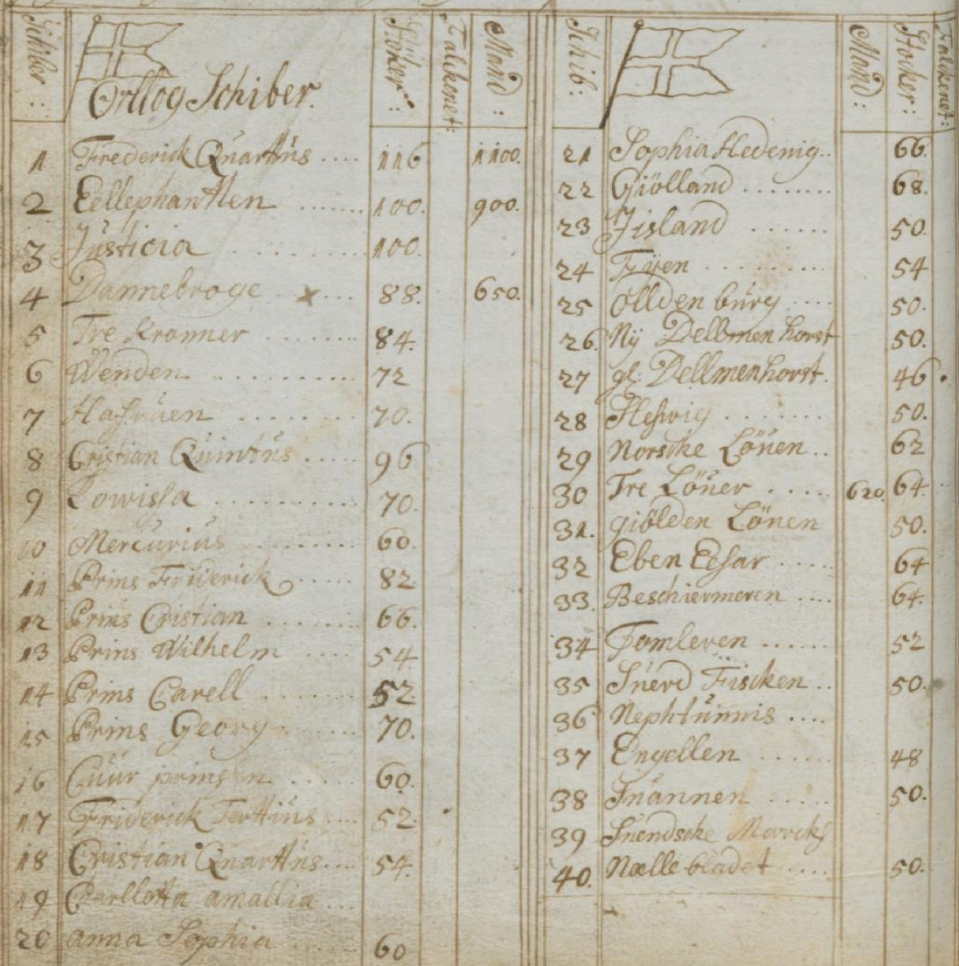 Schiber:
Orllog Schiber.
Støcker:
Falckenet:
Mand:
1 Frederick Quarttus .... 116 1100.
2 Eellephantten ....... 100. 900.
3 Justicia .......... 100.
4 Dannebroge x .... 88. 650.
5 Tre Kronner ........ 84.
6 Wenden .......... 72
7 Hafruen ......... 70.
8 Cristian Quintus ..... 96
9 Lowisla .......... 70.
10 Mercurius ......... 60.
11 Prins Friderick ..... 82
12 Prins Cristian ....... 66.
13 Prins Wilhelm .... 54
14 Prins Carell ....... 52
15 Prins Georg ...... 70.
16 Cuur prinssen ...... 60.
17 Friderick Terttius .... 52
18 Cristian Quarttus ... 54.
19 Charllotta amallia ...
20 anna Sophia .... 60
Schib:
Mand:
Støcker:
Falckenet:
21 Sophia Hedevig .. 66.
22 Giölland ........ 68.
23 Jisland ...... 50.
24 Fyen ........ 54
25 ollden burg .... 50.
26. Nÿ Dellmenhorst 50.
27 gl. Dellmenhorst. 46.
28 Hesvig ....... 50.
29 Norscke Löuen .. 62
30 Tre Löuer ..... 620 64.
31. giölden Löuen 50.
32 Eben Eesar ..... 64
33. Beschiermeren .... 64.
34 Tomleren ..... 52
35 Suerd Fiscken .. 50.
36 Nephtunnis ....
37 Engellen ...... 48
38 Suannen ...... 50.
39 Suendscke Marcks
40. Nælle bladet .... 50.